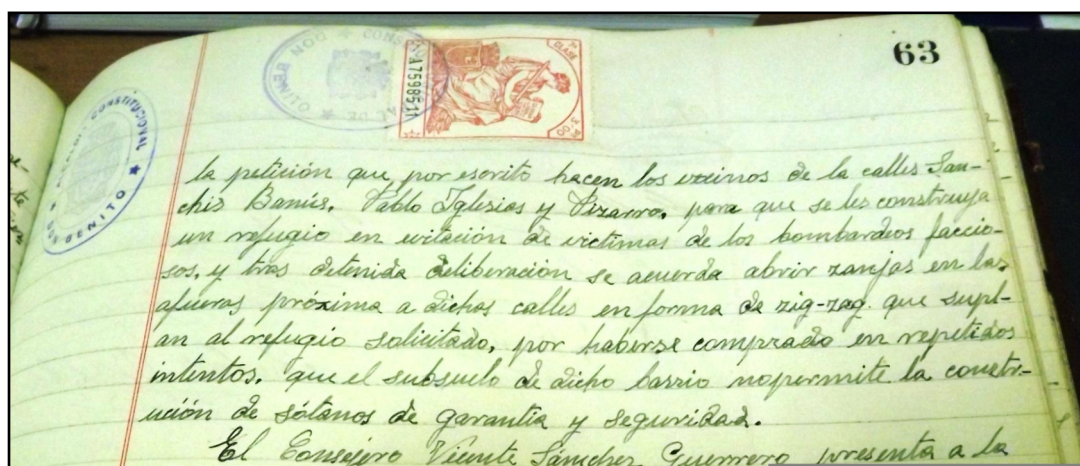 63
CONSTITUCIONAL ★
DON BENITO
★ DON BENITO
A7598511
CLASE
la petición que por escrito hacen los vecinos de la calles San-
chis Banús, Pablo Iglesias y Pizarro, para que se les construya
un refugio en evitación de victimas de los bombardeos faccio-
sos, y tras detenida deliberación se acuerda abrir zanjas en las
afueras próxima a dichas calles en forma de zig-zag. que supl-
an al refugio solicitado, por haberse comprado en repetidos
intentos, que el subsuelo de dicho barrio no permite la constr-
ución de sótanos de garantia y seguridad.
El Consejero Vicente Sánchez Guerrero presenta a la